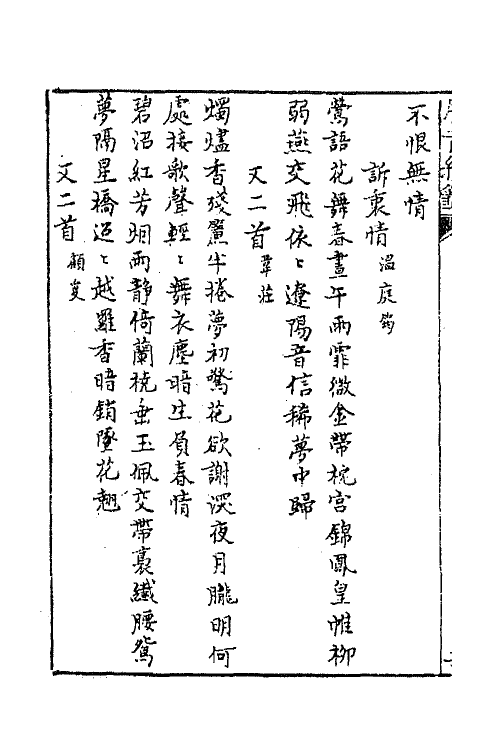 不恨無情
訴衷情 温庭筠
鶯語花舞春晝午雨霏微金帶枕宮錦鳳皇帷柳
弱燕交飛依〻遼陽音信稀夢中歸
又二首 韋莊
燭燼香殘簾半捲夢初驚花欲謝深夜月朧明何
處按歌聲輕〻舞衣塵暗生負春情
碧沼紅芳烟雨静倚蘭橈垂玉佩交帶裊纖腰鴛
夢隔星橋迢〻越羅香暗銷墜花翹
又二首 顧夐